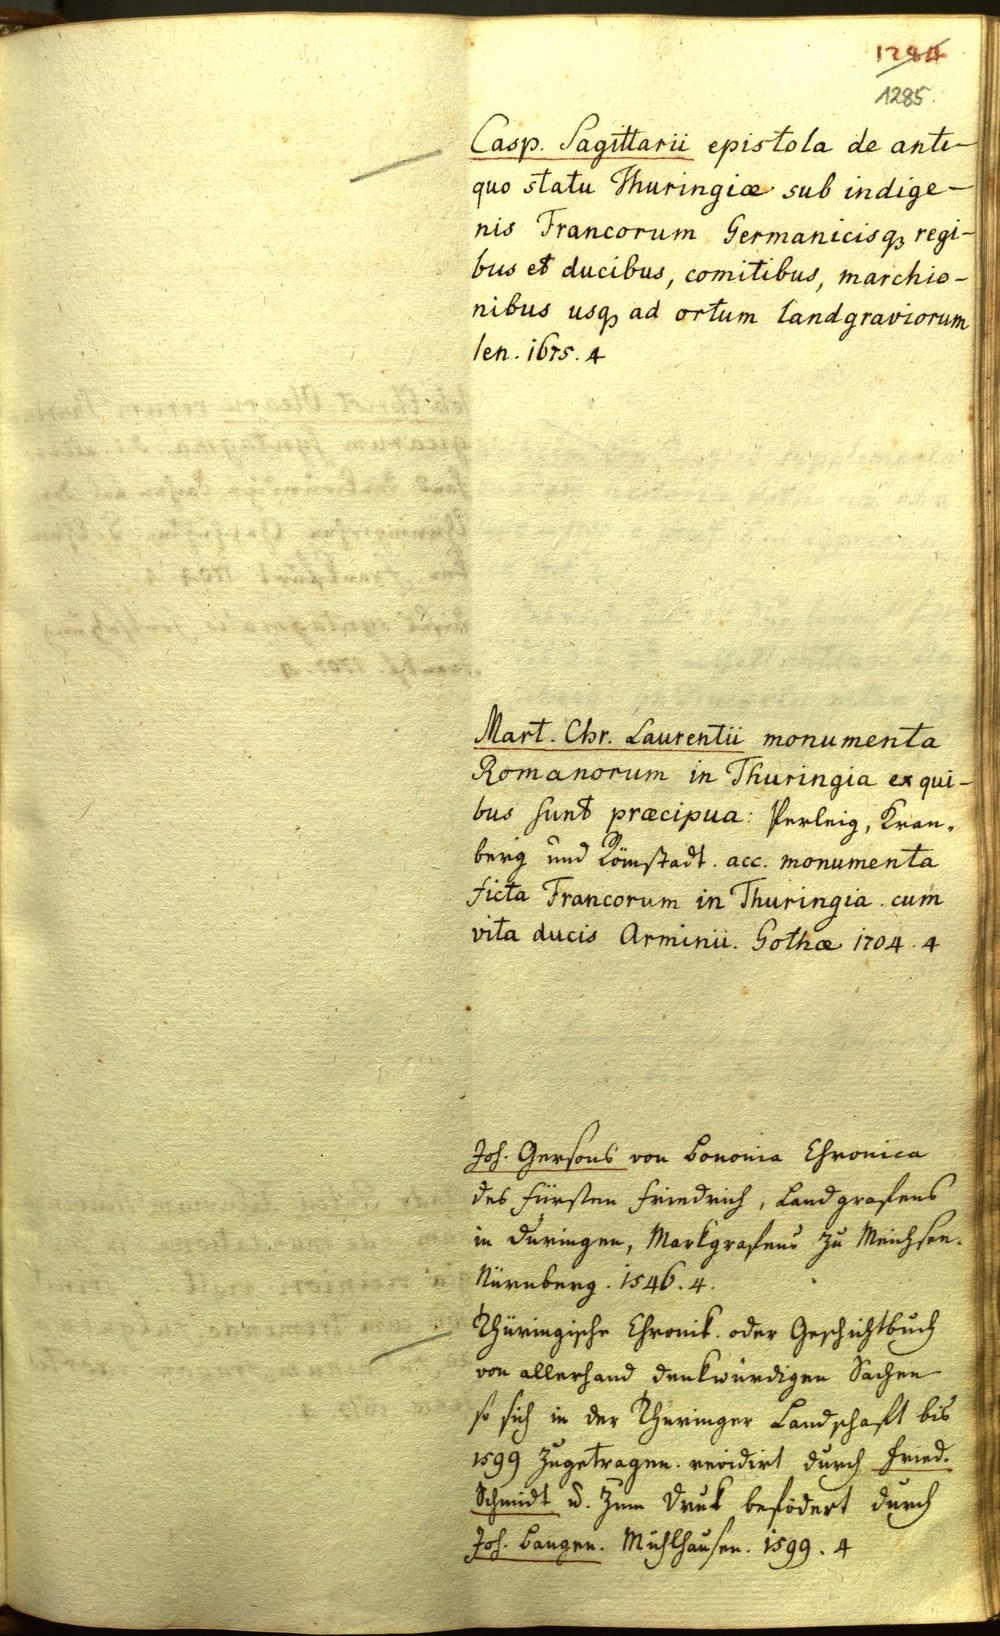 1284
1285
Casp. Sagittarii epistola de anti-
quo statu Thuringiæ sub indige-
nis Francorum Germanicisq; regi-
bus et ducibus, comitibus, marchio-
nibus usq; ad ortum landgraviorum
Ien. 1675. 4
Mart. Chr. Laurentii monumenta
Romanorum in Thuringia ex qui-
bus sunt præcipua: Perleig, Kran-
berg und Römstadt. acc. monumenta
ficta Francorum in Thuringia. cum
vita ducis Arminii. Gothæ 1704. 4
Joh. Gersons von Bononia Chronica
des Fürsten Friedrich, Landgrafens
in Düringen, Markgrafens zu Meichsen.
Nürnberg. 1546. 4.
Thüringische Chronik. oder Geschichtbuch
von allerhand denkwürdigen Sachen
so sich in der Thüringer Landschaft bis
1599 zugetragen. revidirt durch Fried.
Schmidt u. zum Druk befödert durch
Joh. Langen. Mühlhausen. 1599. 4